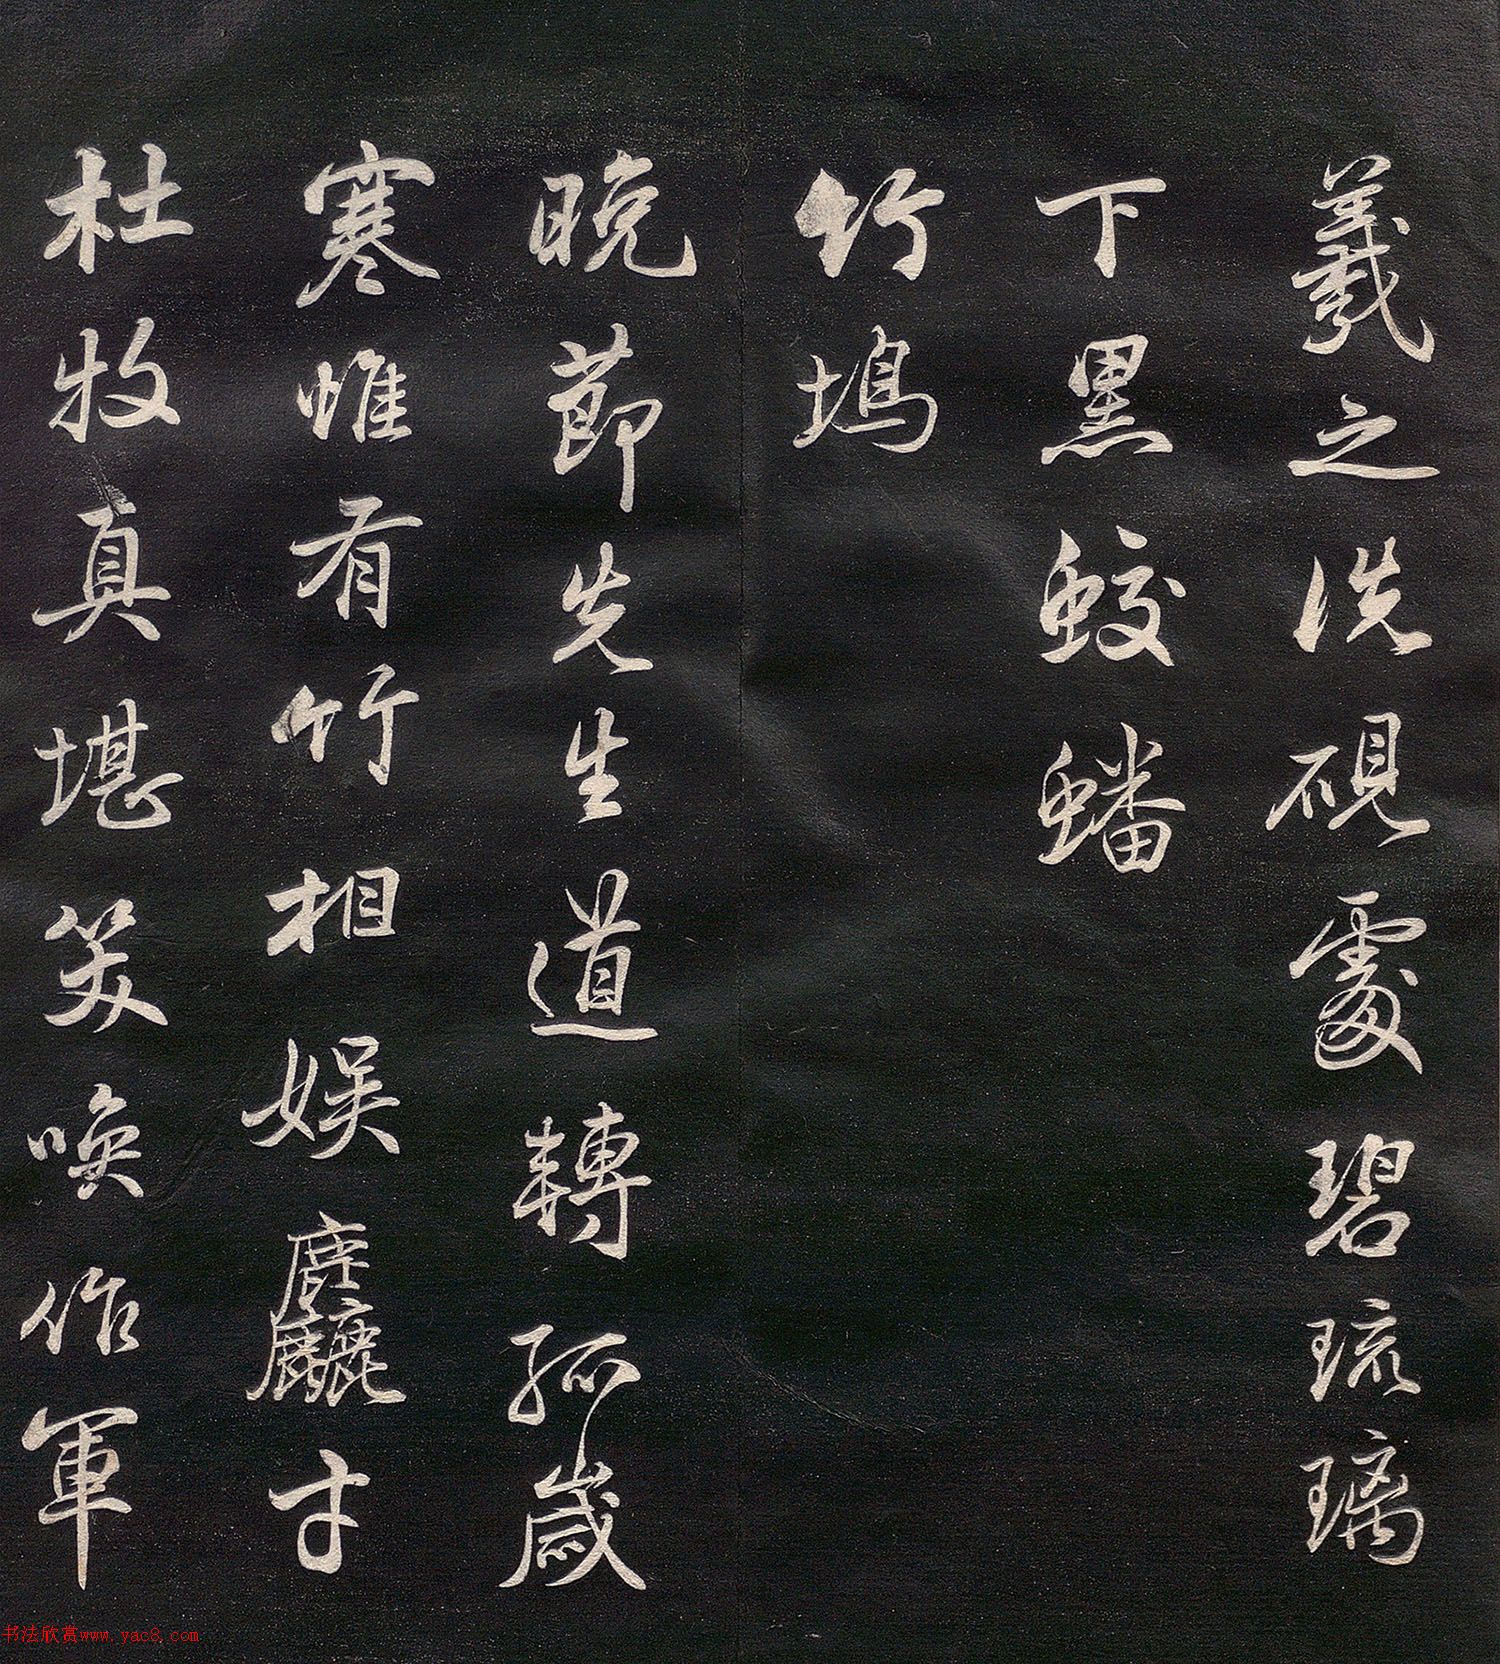 羲之洗硯處碧琉璃
下黑蛟蟠
竹塢
晚節先生道轉孤歲
寒惟有竹相娛麤才
杜牧真堪笑喚作軍
书法欣赏www.yac8.com